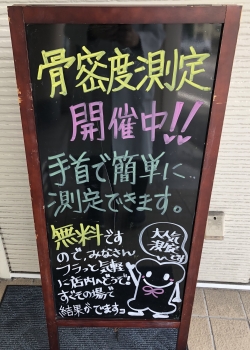 骨密度測定
開催中!!
手首で簡単に
測定できます。
無料です
ので、みなさん
フラっと気軽
に店内へどうぞ!
すぐその場で
結果がでますヨ
大人気